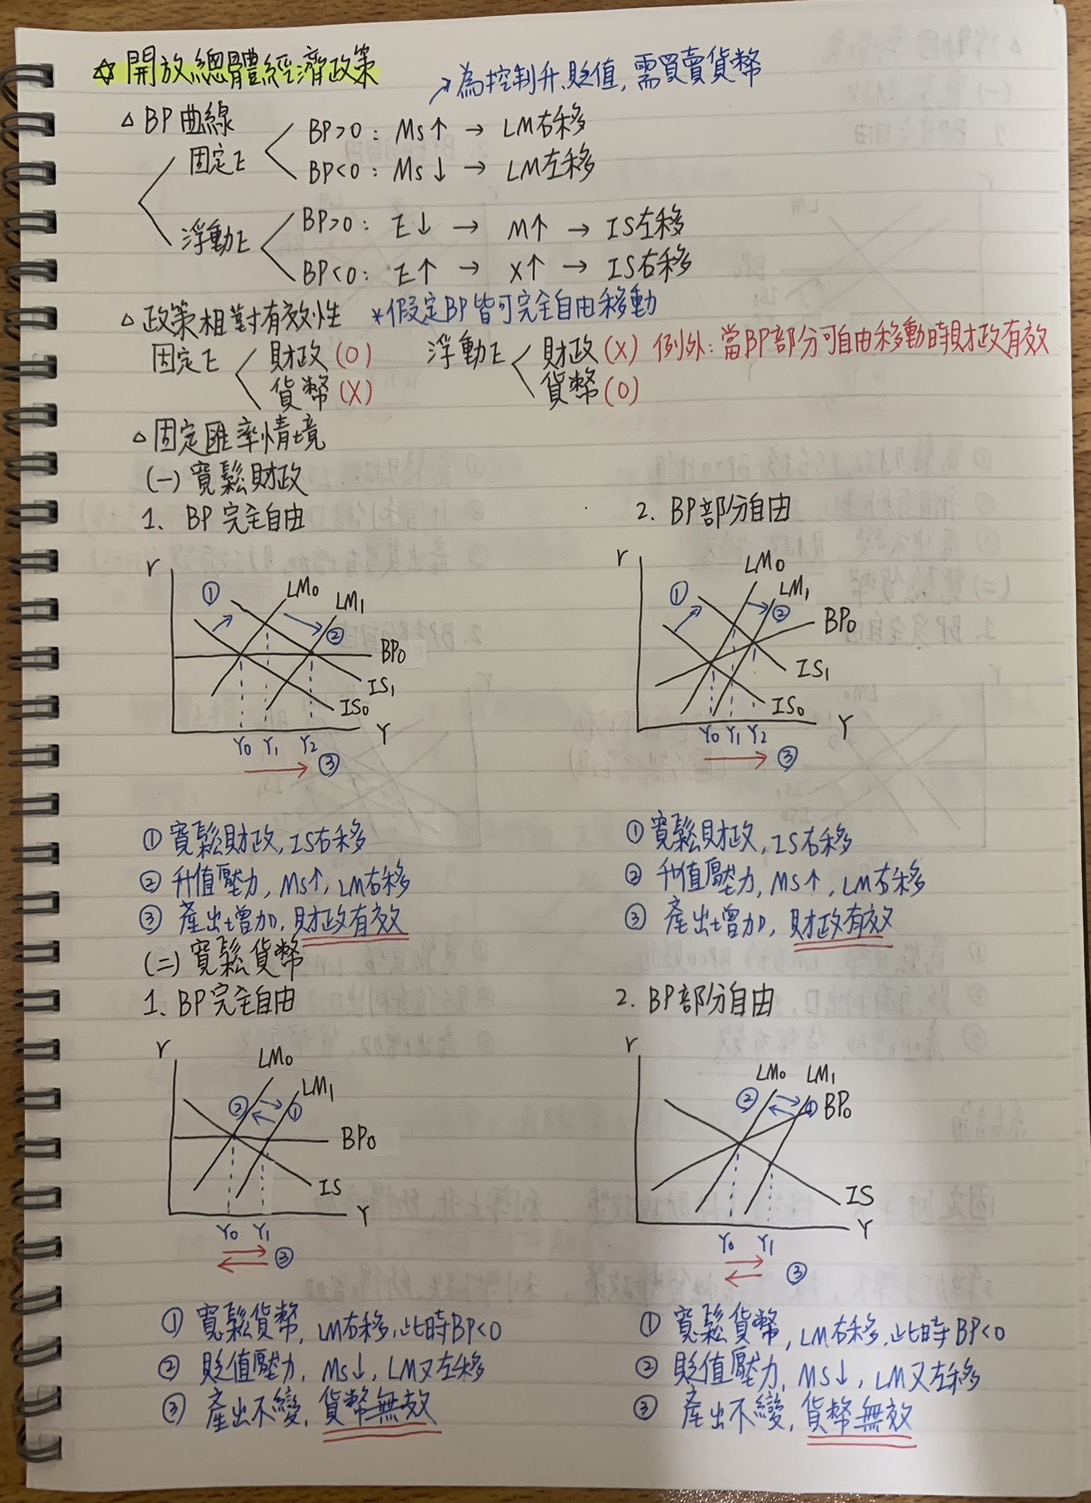 ☆ 開放總體經濟政策
↗為控制升.貶值,需買賣貨幣
△ BP曲線
固定E
BP>0: Ms↑ → LM右移
BP<0: Ms↓ → LM左移
浮動E
BP>0: E↓ → M↑ → IS左移
BP<0: E↑ → X↑ → IS右移
△ 政策相對有效性 *假定BP皆可完全自由移動
固定E 財政(O) 浮動E 財政(X) 例外:當BP部分可自由移動時財政有效
貨幣(X) 貨幣(O)
△固定匯率情境
(一) 寬鬆財政
1. BP完全自由
r
①
LM0
LM1
②
BP0
IS1
IS0
Y
Y0 Y1 Y2
→ ③
① 寬鬆財政,IS右移
② 升值壓力, Ms↑, LM右移
③ 產出增加,財政有效
2. BP部分自由
r
①
LM0
LM1
②
BP0
IS1
IS0
Y
Y0 Y1 Y2
→ ③
① 寬鬆財政,IS右移
② 升值壓力, Ms↑, LM右移
③ 產出增加, 財政有效
(二) 寬鬆貨幣
1. BP完全自由
r
LM0
LM1
② ①
BP0
IS
Y
Y0 Y1
③
① 寬鬆貨幣, LM右移,此時BP<0
② 貶值壓力, Ms↓, LM又左移
③ 產出不變, 貨幣無效
2. BP部分自由
r
LM0 LM1
② ①
BP0
IS
Y
Y0 Y1
③
① 寬鬆貨幣, LM右移,此時BP<0
② 貶值壓力, Ms↓, LM又左移
③ 產出不變, 貨幣無效